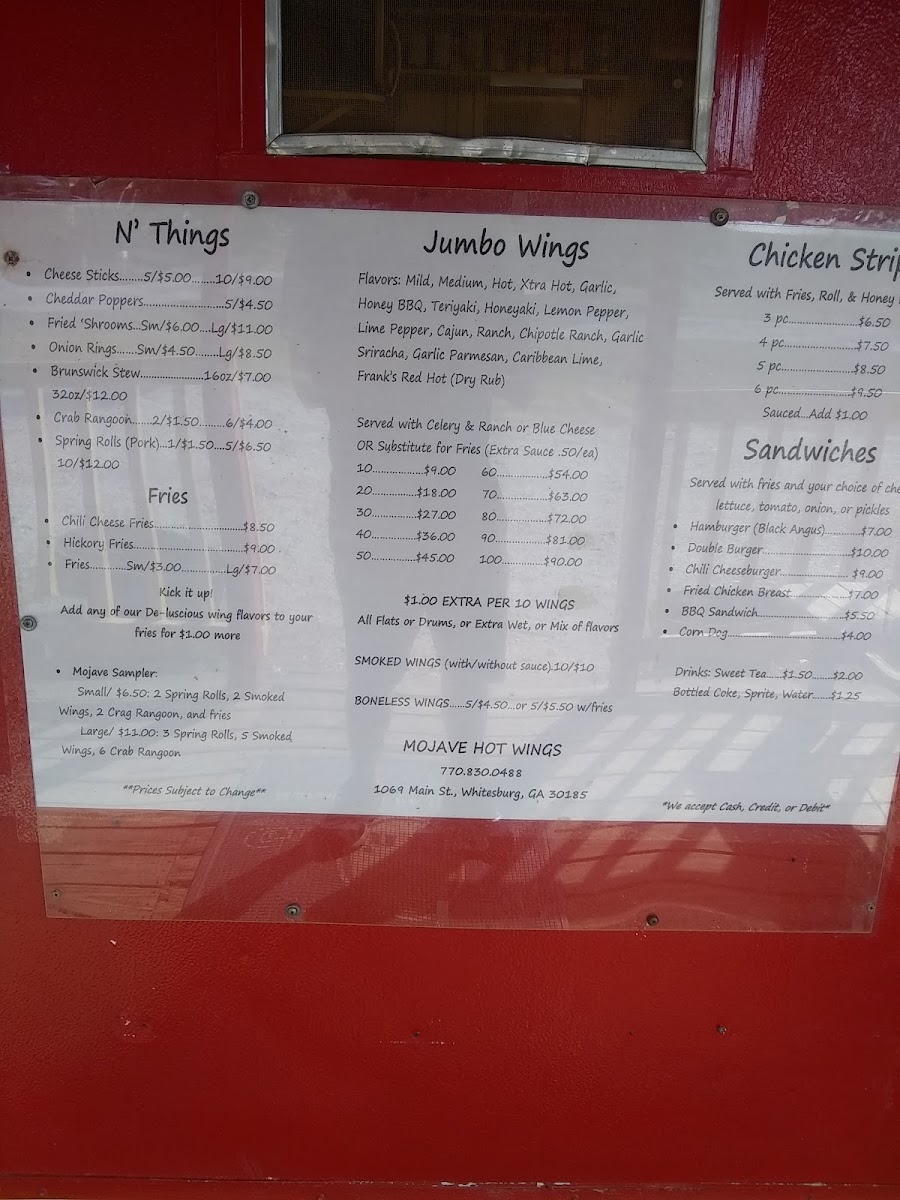 N' Things
• Cheese Sticks........5/$5.00........10/$9.00
• Cheddar Poppers......................5/$4.50
• Fried 'Shrooms...Sm/$6.00....Lg/$11.00
• Onion Rings......Sm/$4.50........Lg/$8.50
• Brunswick Stew......................16oz/$7.00
32oz/$12.00
• Crab Rangoon.......2/$1.50.......6/$4.00
• Spring Rolls (Pork)...1/$1.50....5/$6.50
10/$12.00
Fries
• Chili Cheese Fries..........................$8.50
• Hickory Fries................................$9.00
• Fries...........Sm/$3.00.............Lg/$7.00
Kick it up!
Add any of our De-luscious wing flavors to your
fries for $1.00 more
• Mojave Sampler:
Small/ $6.50: 2 Spring Rolls, 2 Smoked
Wings, 2 Crag Rangoon, and fries
Large/ $11.00: 3 Spring Rolls, 5 Smoked
Wings, 6 Crab Rangoon
**Prices Subject to Change**
Jumbo Wings
Flavors: Mild, Medium, Hot, Xtra Hot, Garlic,
Honey BBQ, Teriyaki, Honeyaki, Lemon Pepper,
Lime Pepper, Cajun, Ranch, Chipotle Ranch, Garlic
Sriracha, Garlic Parmesan, Caribbean Lime,
Frank's Red Hot (Dry Rub)
Served with Celery & Ranch or Blue Cheese
OR Substitute for Fries (Extra Sauce .50/ea)
10..................$9.00 60.................$54.00
20...............$18.00 70.................$63.00
30...............$27.00 80.................$72.00
40...............$36.00 90.................$81.00
50...............$45.00 100...............$90.00
$1.00 EXTRA PER 10 WINGS
All Flats or Drums, or Extra Wet, or Mix of flavors
SMOKED WINGS (with/without sauce).10/$10
BONELESS WINGS......5/$4.50...or 5/$5.50 w/fries
MOJAVE HOT WINGS
770.830.0488
1069 Main St., Whitesburg, GA 30185
Chicken Strip
Served with Fries, Roll, & Honey
3 pc........................$6.50
4 pc........................$7.50
5 pc........................$8.50
6 pc........................$9.50
Sauced...Add $1.00
Sandwiches
Served with fries and your choice of che
lettuce, tomato, onion, or pickles
• Hamburger (Black Angus)............$7.00
• Double Burger............................$10.00
• Chili Cheeseburger........................ $9.00
• Fried Chicken Breast....................$7.00
• BBQ Sandwich.............................$5.50
• Corn Dog......................................$4.00
Drinks: Sweet Tea.....$1.50.......$2.00
Bottled Coke, Sprite, Water......$1.25
*We accept Cash, Credit, or Debit*